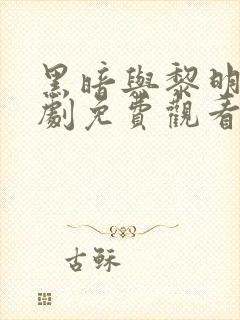 黑暗與黎明
劇免費觀看
古穌